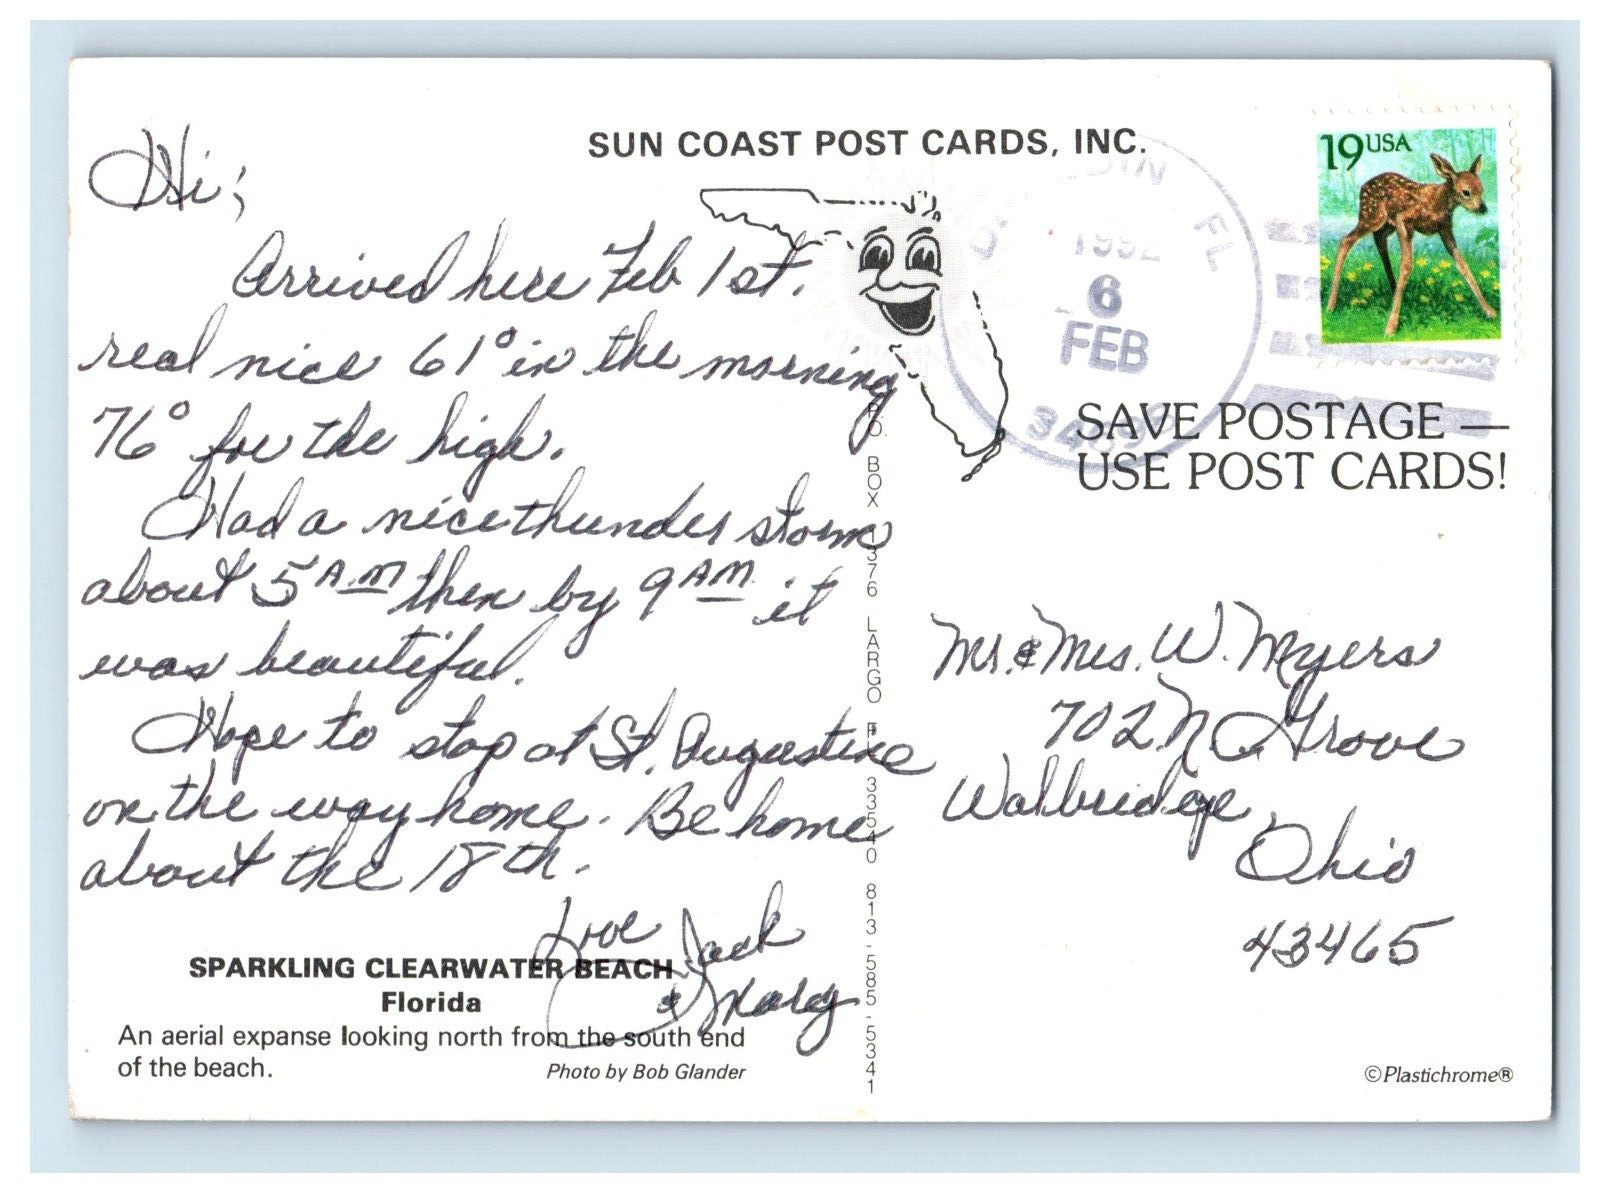 SUN COAST POST CARDS, INC.
Hi;
Arrived here Feb 1st.
real nice 61° in the morning
76° for the high.
Had a nice thunder storm
about 5 A.M then by 9 AM. it
was beautiful.
Hope to stop at St. Augustine
on the way home. Be home
about the 18th.
Love Jack
& Mary
SPARKLING CLEARWATER BEACH
Florida
An aerial expanse looking north from the south end
of the beach.
Photo by Bob Glander
P.O. BOX 1376 LARGO FL 33540 813-585-5341
FL
1992
6
FEB
19 USA
SAVE POSTAGE —
USE POST CARDS!
Mr. & Mrs. W. Myers
702 N Grove
Walbridge,
Ohio
43465
©Plastichrome®